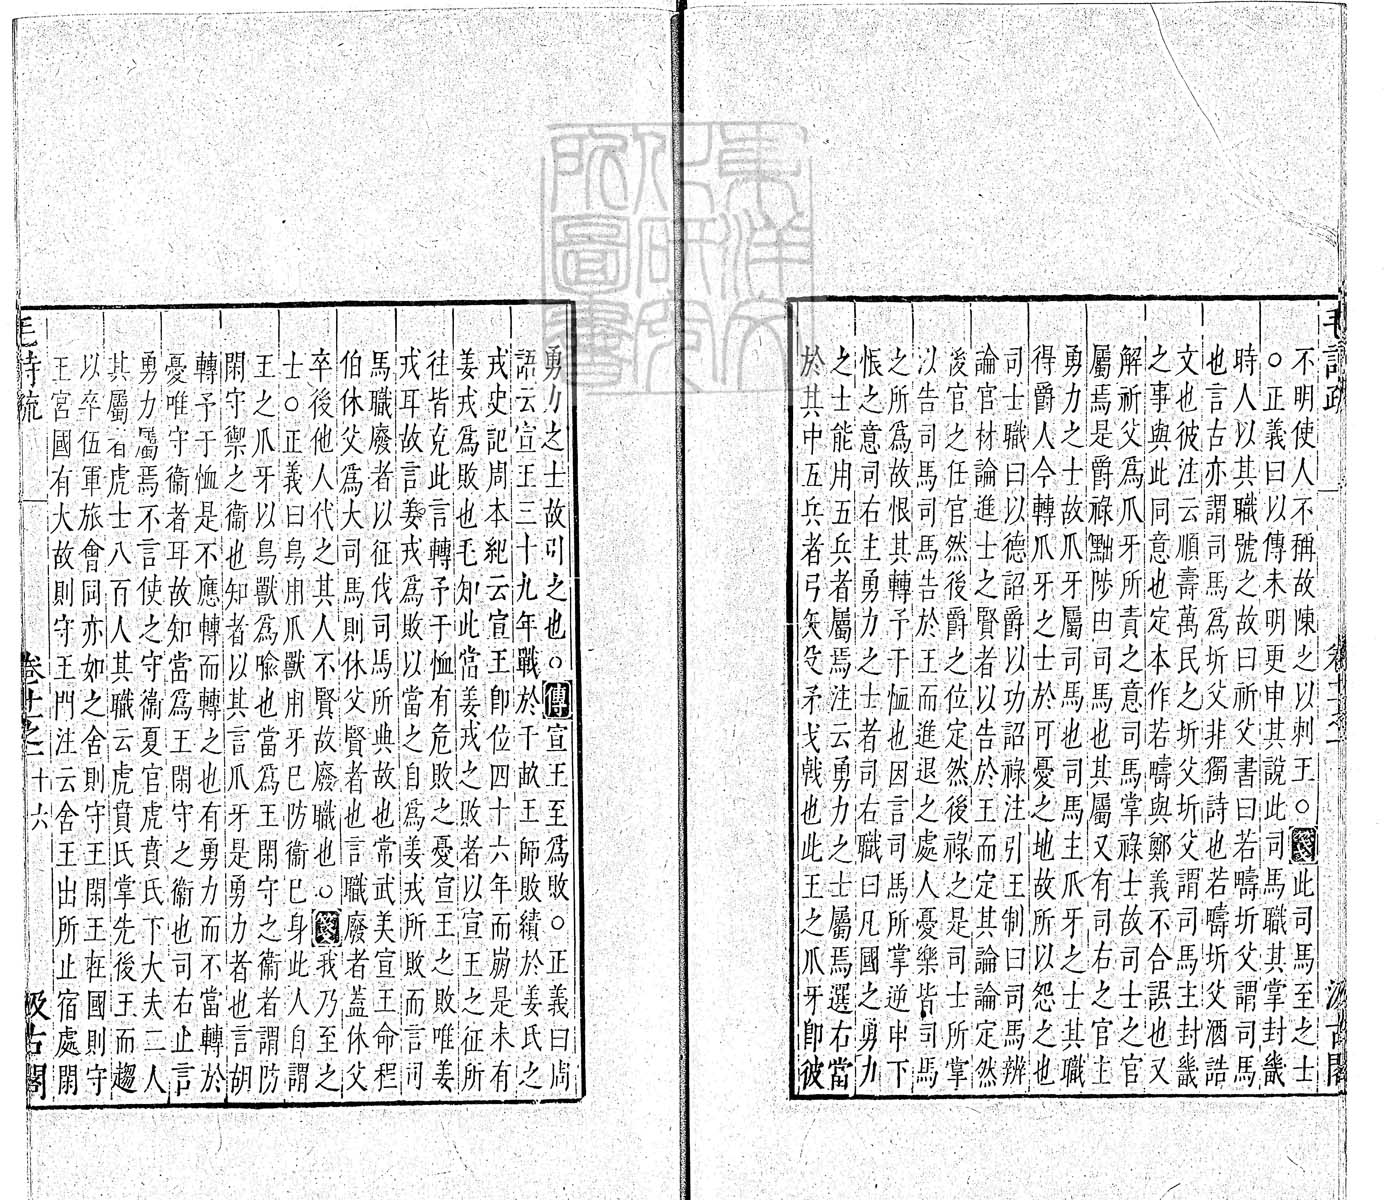 不明使人不稱故陳之以刺王○箋此司馬至之士
○正義曰以傳未明更申其說此司馬職其掌封畿
時人以其職號之故曰祈父書曰若疇圻父謂司馬
也言古亦謂司馬爲圻父非獨詩也若疇圻父酒誥
文也彼注云順壽萬民之圻父圻父謂司馬主封畿
之事與此同意也定本作若疇與鄭義不合誤也又
解祈父爲爪牙所責之意司馬掌祿士故司士之官
屬焉是爵祿黜陟由司馬也其屬又有司右之官主
勇力之士故爪牙屬司馬也司馬主爪牙之士其職
得爵人今轉爪牙之士於可憂之地故所以怨之也
司士職曰以德詔爵以功詔祿注引王制曰司馬辨
論官材論進士之賢者以告於王而定其論論定然
後官之任官然後爵之位定然後祿之是司士所掌
以告司馬司馬告於王而進退之處人憂樂皆司馬
之所爲故恨其轉予于恤也因言司馬所掌逆申下
悵之意司右主勇力之士者司右職曰凡國之勇力
之士能用五兵者屬焉注云勇力之士屬焉選右當
於其中五兵者弓矢殳矛戈戟也此王之爪牙卽彼
勇力之士故引之也○傳宣王至爲敗○正義曰周
語云宣王三十九年戰於千畝王師敗績於姜氏之
戎史記周本紀云宣王卽位四十六年而崩是未有
姜戎爲敗也毛知此當姜戎之敗者以宣王之征所
往皆克此言轉予于恤有危敗之憂宣王之敗唯姜
戎耳故言姜戎爲敗以當之自爲姜戎所敗而言司
馬職廢者以征伐司馬所典故也常武美宣王命程
伯休父爲大司馬則休父賢者也言職廢者蓋休父
卒後他人代之其人不賢故廢職也○箋我乃至之
士○正義曰鳥用爪獸用牙巳防衞巳身此人自謂
王之爪牙以鳥獸爲喻也當爲王閑守之衞者謂防
閑守禦之衞也知者以其言爪牙是勇力者也言胡
轉予于恤是不應轉而轉之也有勇力而不當轉於
憂唯守衞者耳故知當爲王閑守之衞也司右止言
勇力屬焉不言使之守衞夏官虎賁氏下大夫二人
其屬有虎士八百人其職云虎賁氏掌先後王而趨
以卒伍軍旅會同亦如之舍則守王閑王在國則守
王宮國有大故則守王門注云舍王出所止宿處閑
毛詩疏 卷十一之一 十六 汲古閣